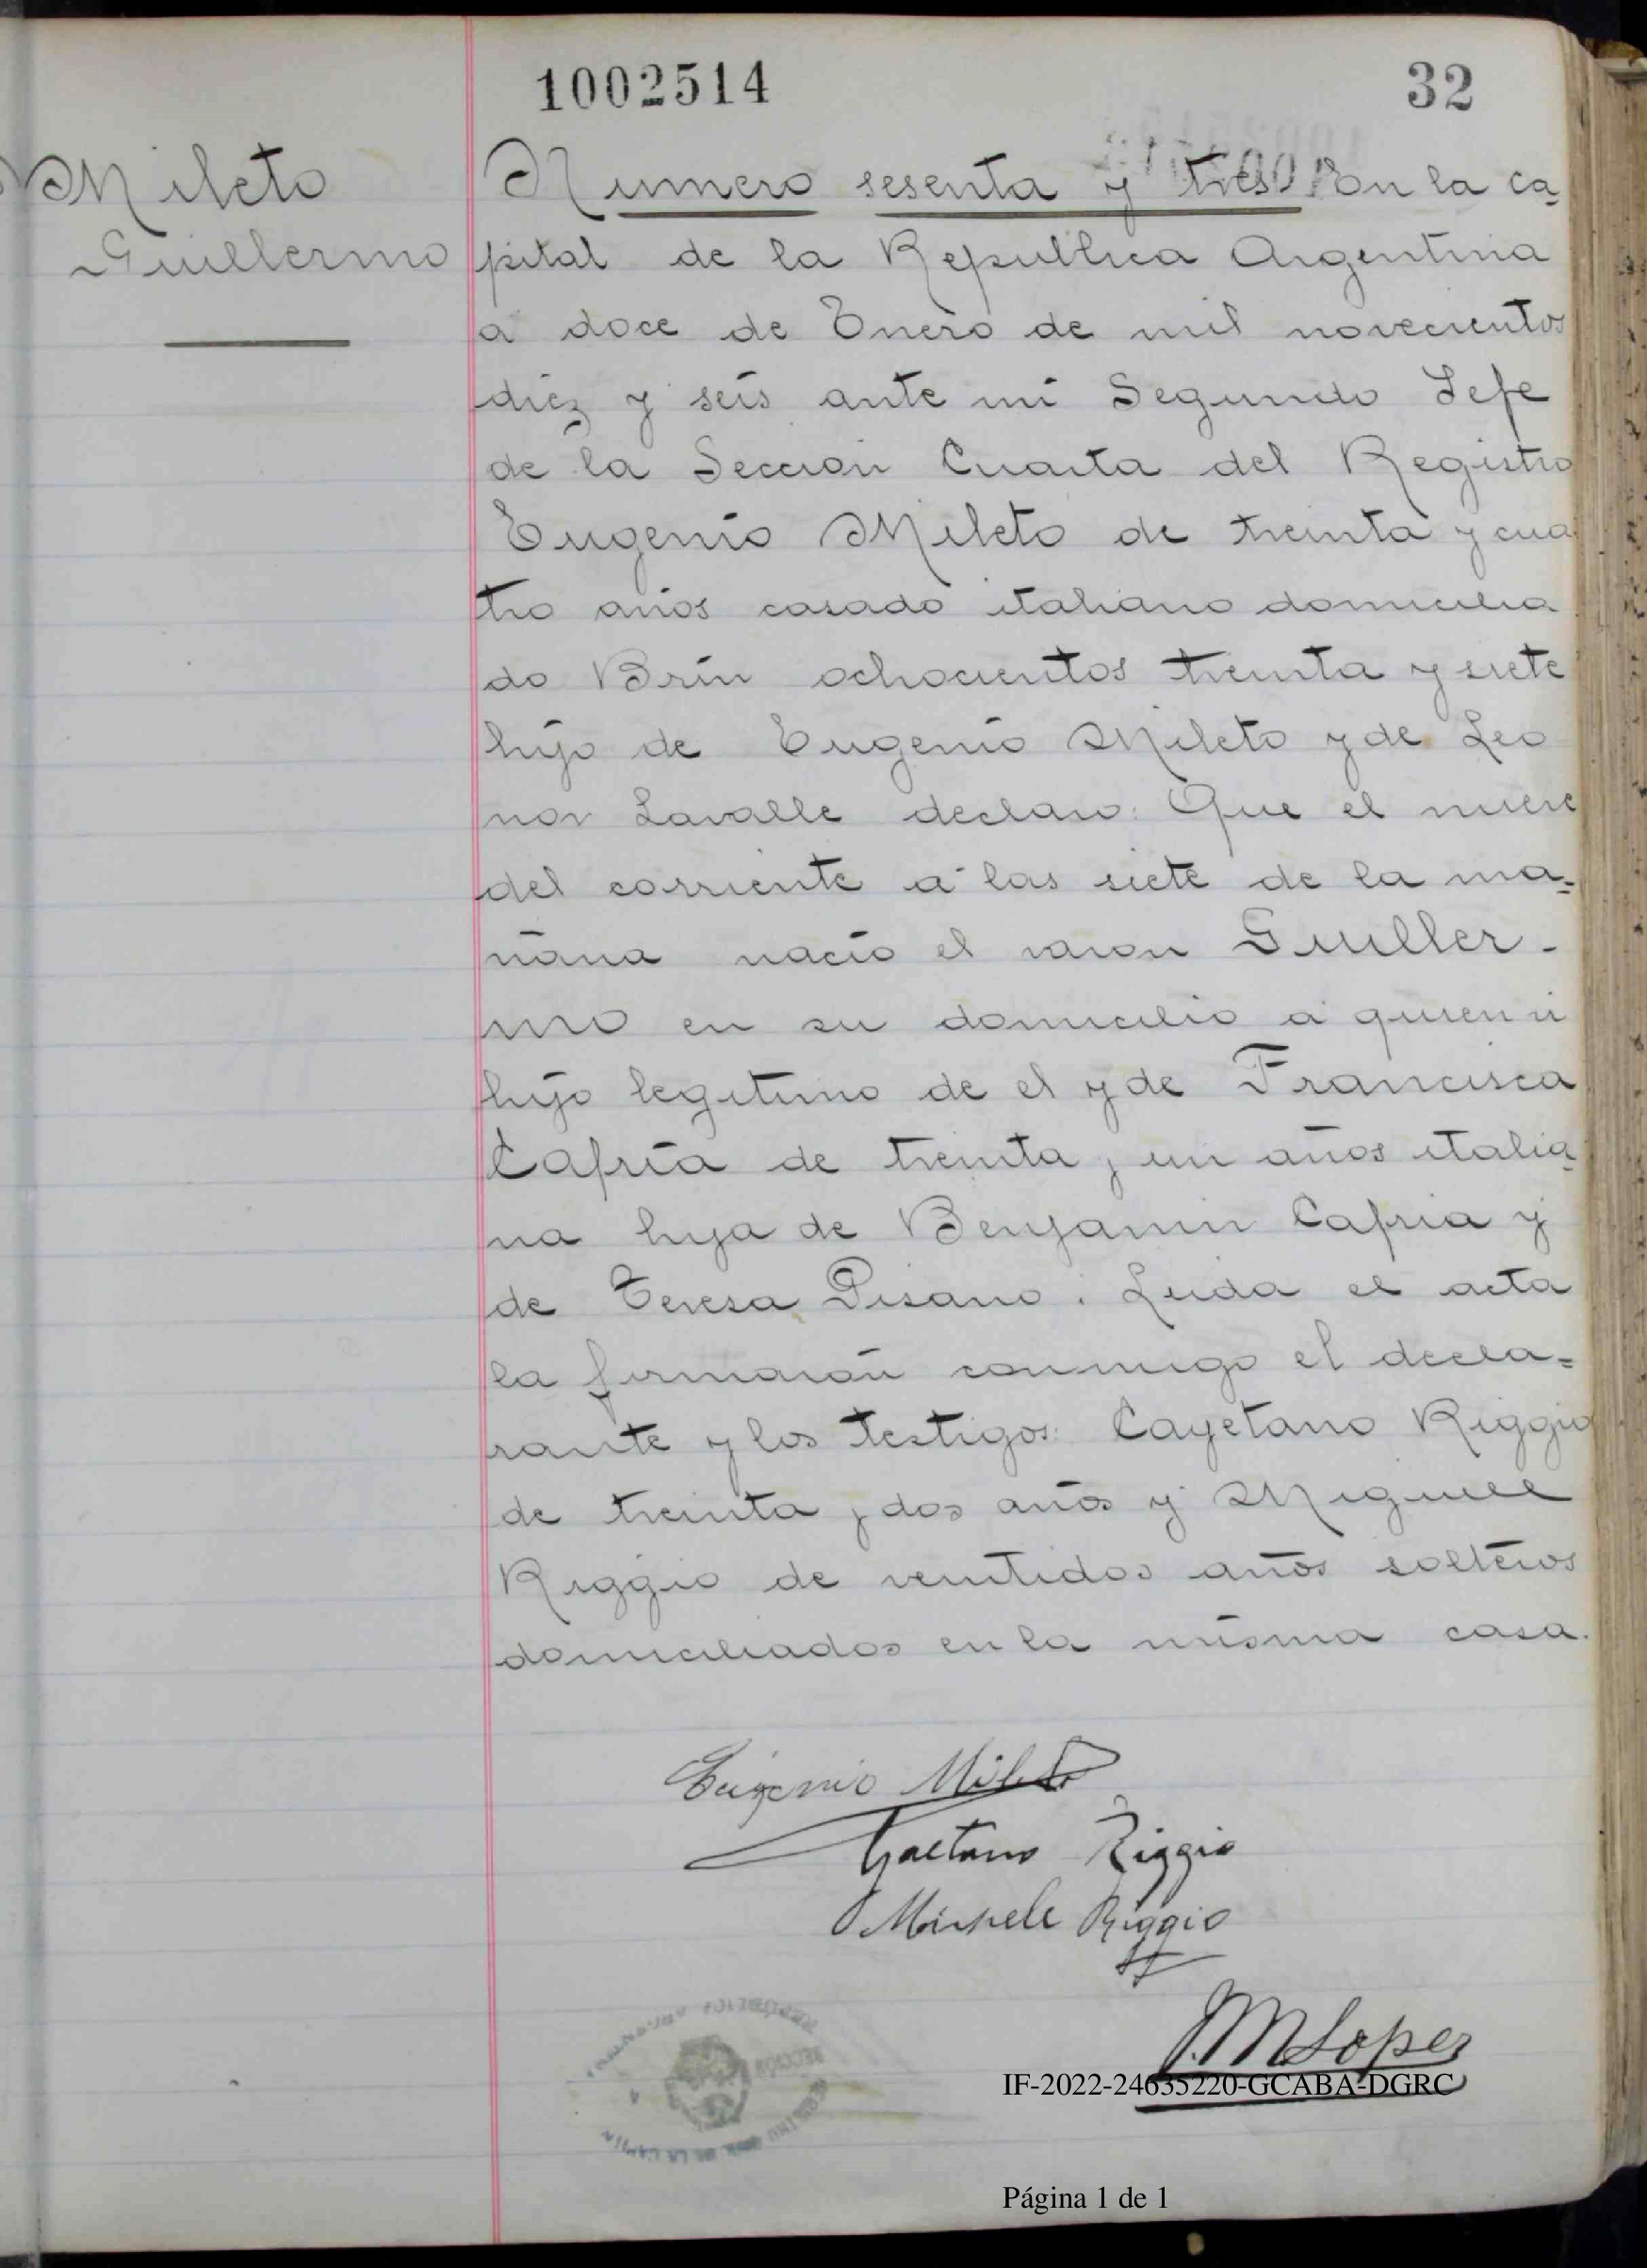 1002514
32
Mileto
Guillermo
Numero sesenta y tres En la ca
pital de la Republica Argentina
a doce de Enero de mil novecientos
diez y seis ante mi Segundo Jefe
de la Sección Cuarta del Registro
Eugenio Mileto de treinta y cua
tro años casado italiano domicilia
do Brin ochocientos treinta y siete
hijo de Eugenio Mileto y de Leo
nor Lavalle declaro: Que el nueve
del corriente a las siete de la ma=
ñana nació el varon Guiller-
mo en su domicilio a quien vi
hijo legitimo de el y de Francisca
Cafria de treinta y un años italia
na hija de Benjamin Cafria y
de Teresa Pisano. Leida el acta
la firmaron conmigo el decla=
rante y los testigos: Cayetano Riggio
de treinta y dos años y Miguel
Riggio de ventidos años solteros
domiciliados en la misma casa.
Eugenio Mileto
Gaetano Riggio
Michele Riggio
J.M Lopez
IF-2022-24635220-GCABA-DGRC
REGISTRO CIVIL DE LA CAPITAL
Página 1 de 1